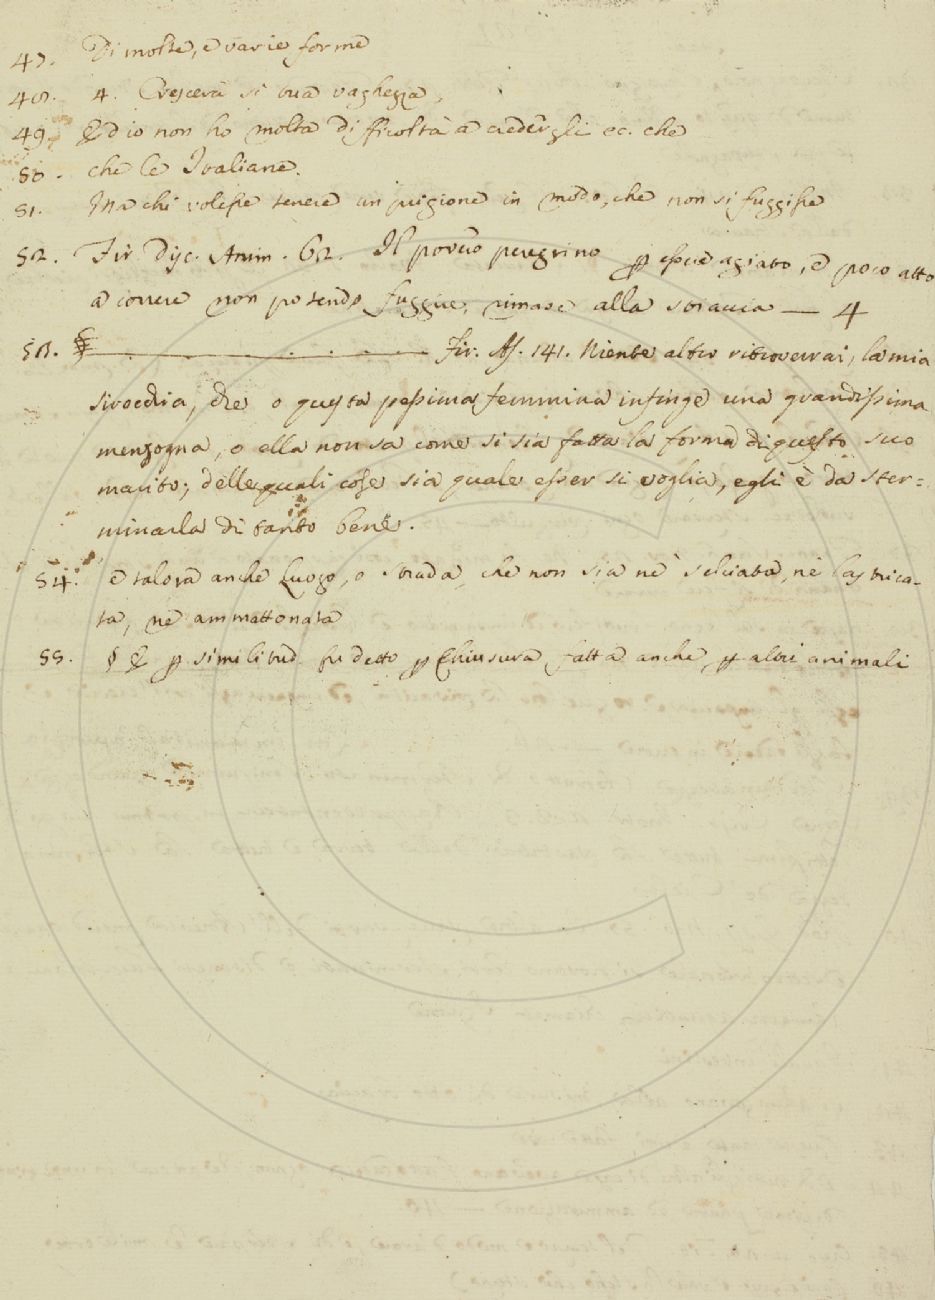 47. Di molte, e varie forme
48. 4. Crescerà si sua vaghezza,
49. & d io non ho molta difficoltà a credergli ec. che
50. che le Italiane.
51. Ma chi volesse tenere un prigione in modo, che non si fuggisse
52. Fir. Disc. Anim. 62. Il porco peregrino ꝑ esser agiato, e poco atto
a correre non potendo fuggire, rimase alla stiaccia — 4
53. § Fir. As. 141. Niente altro ritroverrai, la mia
sirocchia, che o questa pessima femmina infinge una grandissima
menzogna, o ella non sa come si sia fatta la forma di questo suo
marito; delle quali cose sia quale esser si voglia, egli è da ster=
minarla di tanto bene.
54. e talora anche Luogo, o strada, che non sia nè selciata, nè lastrica-
ta, nè ammattonata
55. § & ꝑ similitud. fu detto ꝑ Chiusura fatta anche ꝑ altri animali